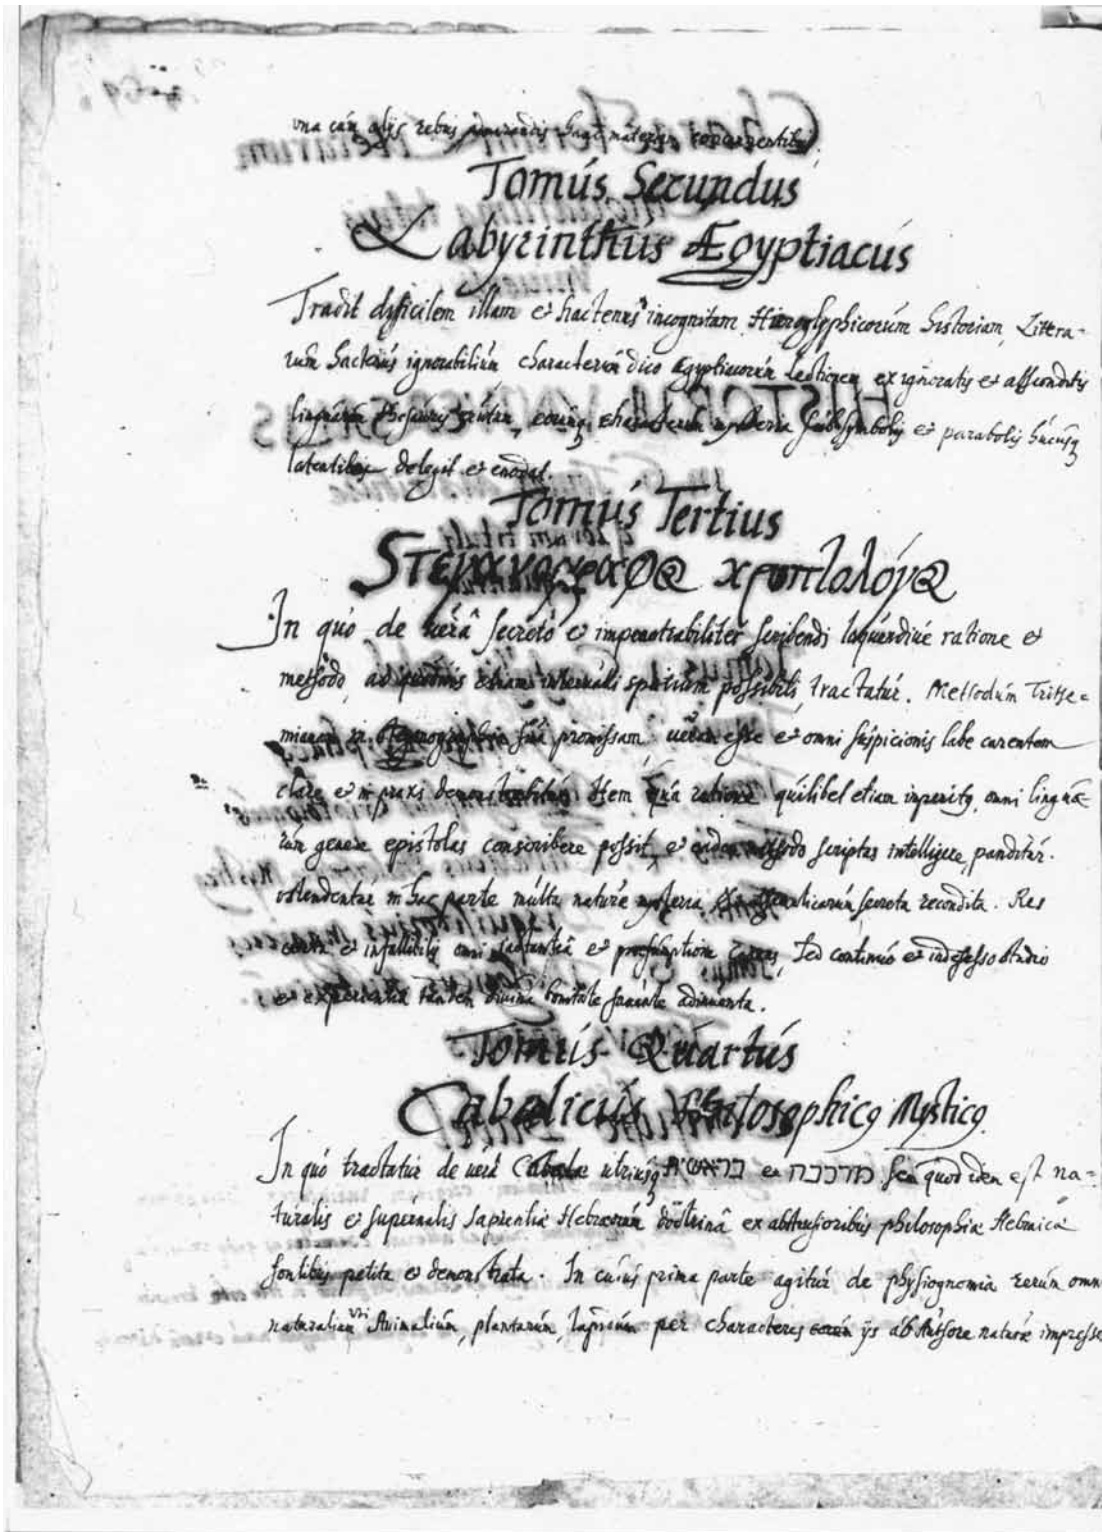 una cum alijs rebus admirandis huic materiae concurrentibus.
Tomus Secundus
Labyrinthus Ægyptiacus
Tradit difficilem illam et hactenus incognitam Hieroglyphicorum historiam, Littera-
rum hactenus ignorabilium characterum dico ægyptiacorum Lectionem ex ignoratis et absconditis
linguarum thesauris erutam, eorumq characterum mysteria sub symbolis et parabolis hucusq
latentibus delegit et enodat.
Tomus Tertius
In quo de vera secreto et impenetrabiliter scribendi loquendiue ratione et
methodo, ad quoduis etiam interualli spatium possibili, tractatur. Methodum Trithe-
mianam in steganographia sua promissam ueram esse et omni suspicionis labe carentem
clare et in praxi demonstrabitur. Item qua ratione quilibet etiam imperitq omni lingua-
rum genere epistolas conscribere possit, et eadem methodo scriptas intelligere, panditur.
ostendentur in hac parte multa naturæ mysteria, secreta recondita. Res
certa et infallibilis omni et praesumptione carens, sed continuo et indefesso studio
et experientia tandem diuina bonitate fauente adinuenta.
Tomus Quartus
Cabalicus Philosophicq Mysticq
In quo tractatur de uera Cabala utriusq בראשית et מרכבה seu quod idem est na-
turalis et supernalis sapientiæ Hebræorum doctrinâ ex abstrusioribus philosophiæ Hebraicæ
fontibus petita et demonstrata. In cuius prima parte agitur de physiognomia rerum omn
naturalium uti Animalium, plantarum, lapidum per characteres eorum ijs ab Authore naturæ impresso